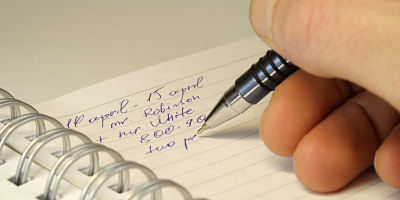 14 april - 15 april
mr. Robinson
+ mr. White
800-90
two pr